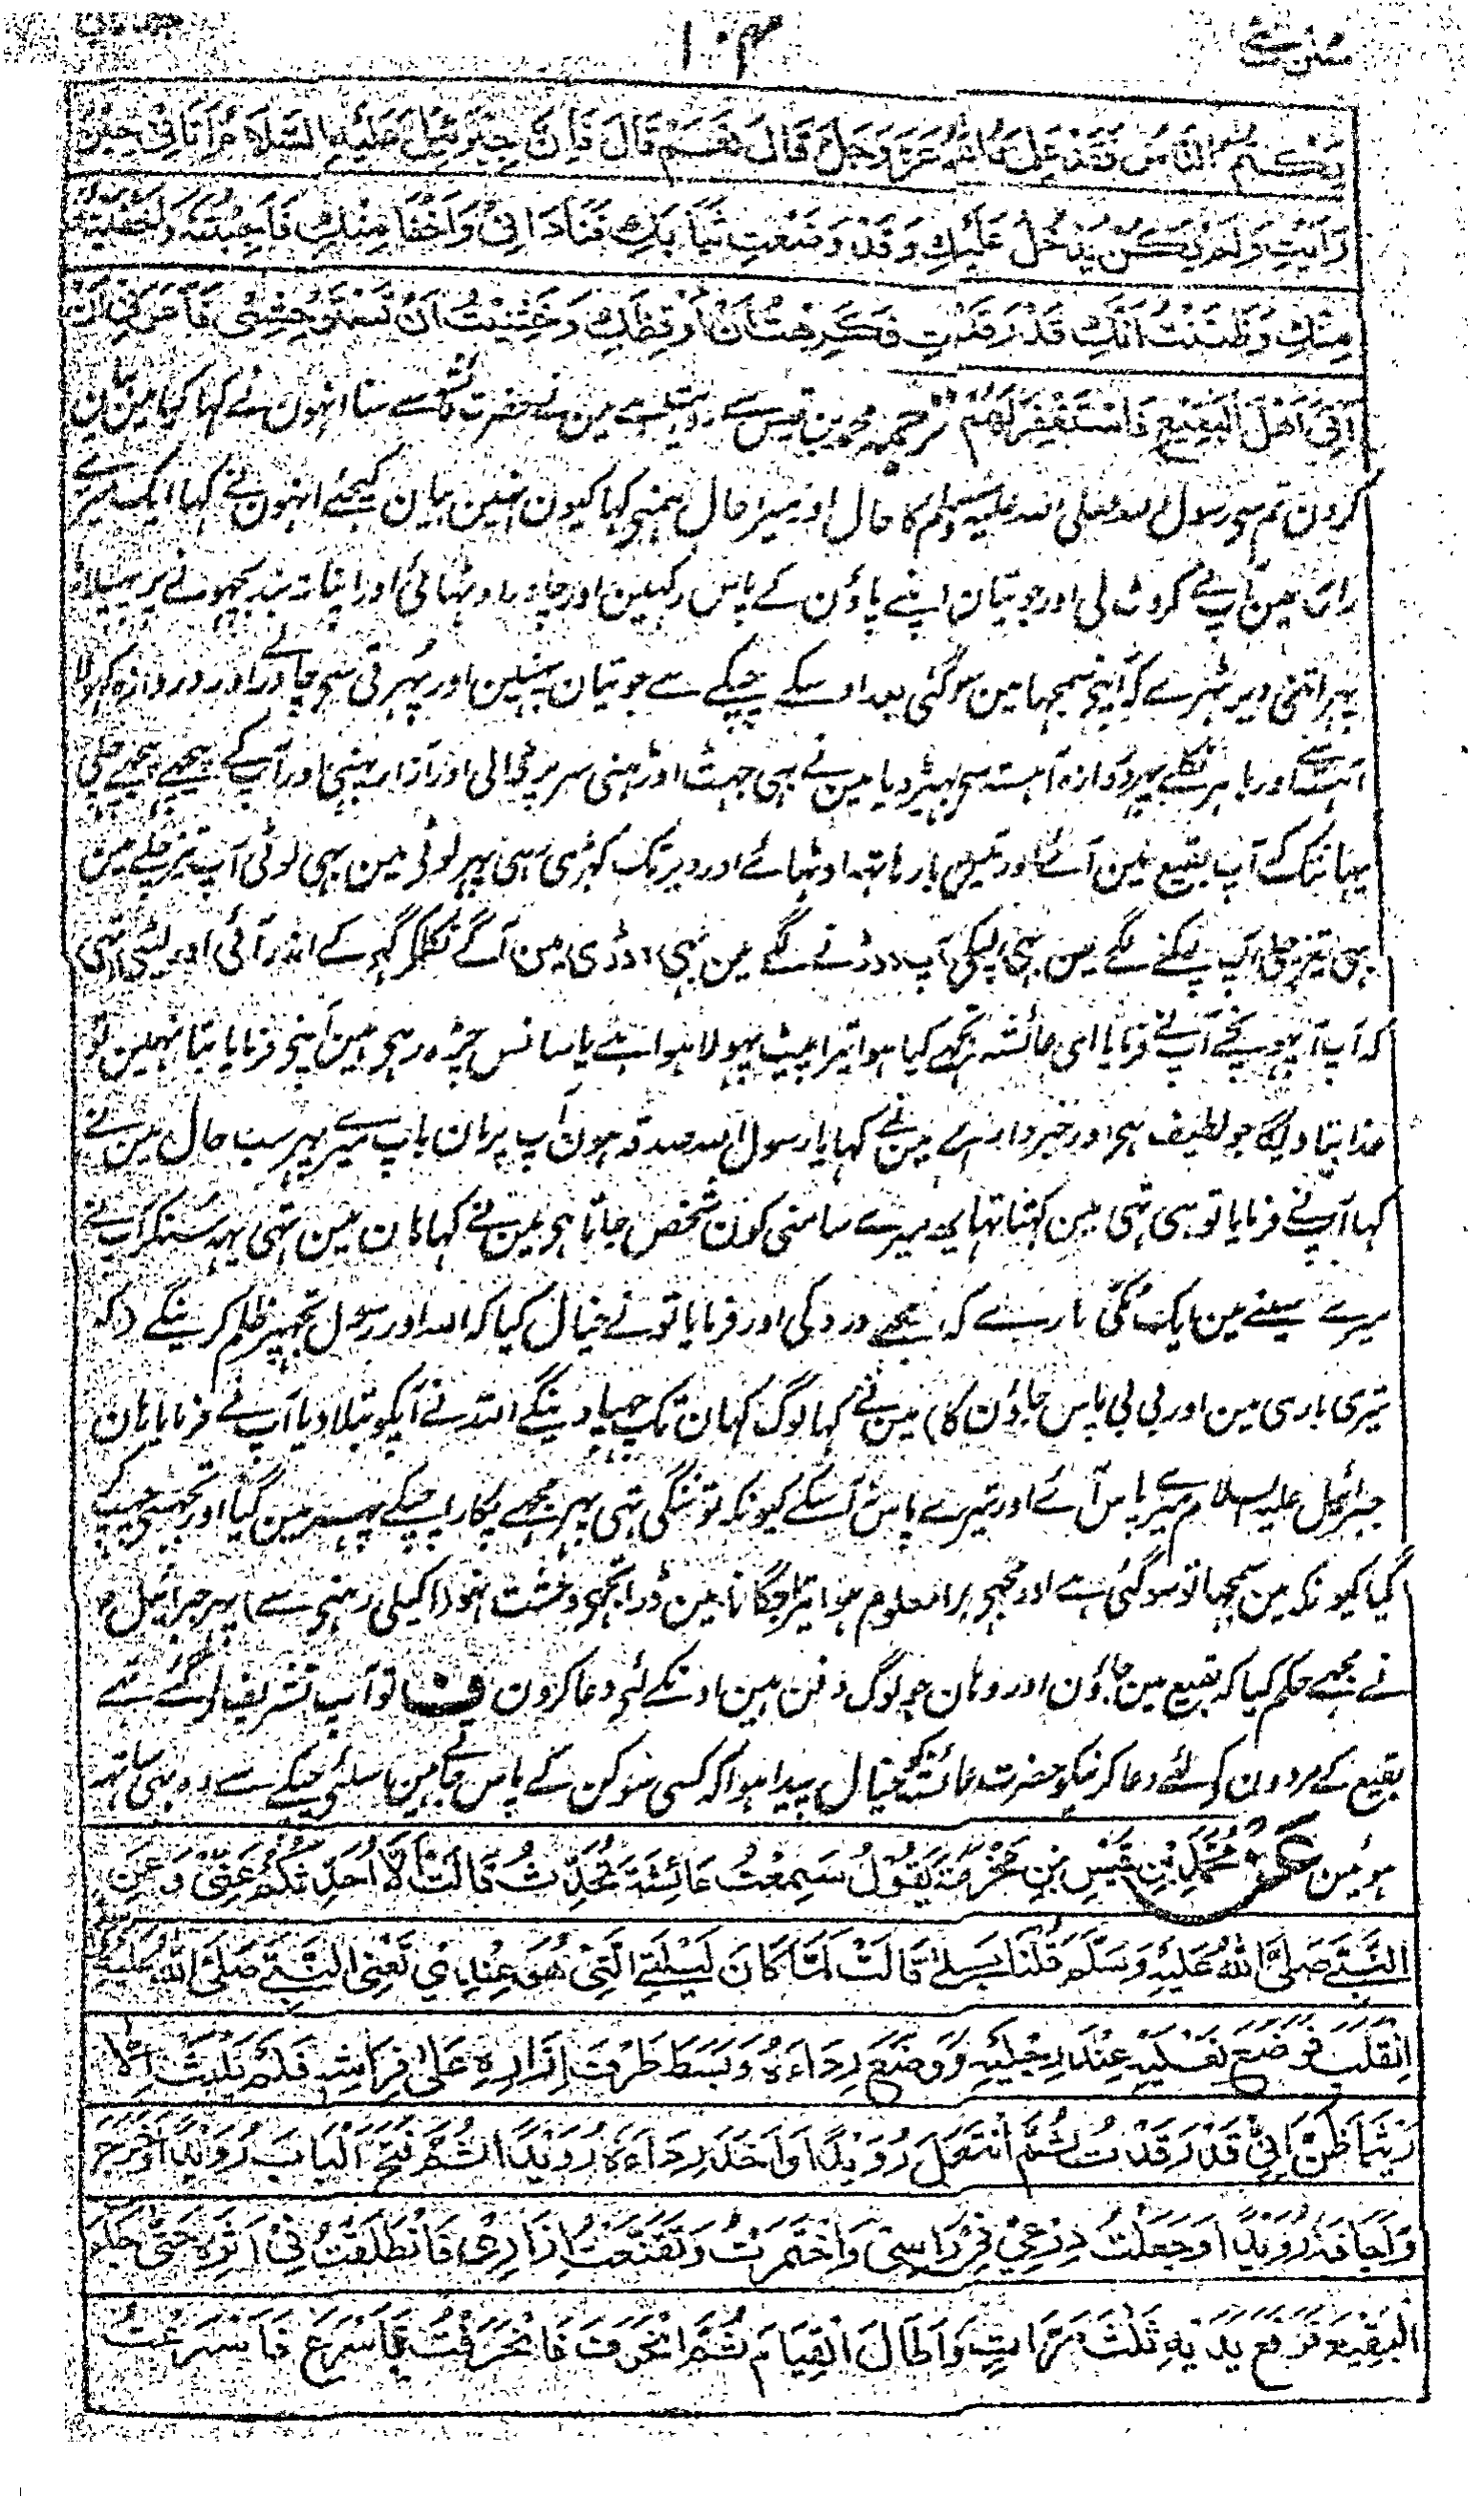 سنن نسائی
۱۰۴
جلد ثانی
يَكْتُمُ النَّاسُ فَقَدْ عَلِمَهُ اللّٰهُ عَزَّ وَجَلَّ قَالَ نَعَمْ قَالَ فَاِنَّ جِبْرَئِيْلَ عَلَيْهِ السَّلَامُ اَتَانِيْ حِيْنَ
رَاَيْتِ وَلَمْ يَكُنْ يَدْخُلُ عَلَيْكِ وَقَدْ وَضَعْتِ ثِيَابَكِ فَنَادَانِيْ وَاَخْفَا مِنْكِ فَاَجَبْتُهُ وَاَخْفَيْتُهُ
مِنْكِ وَظَنَنْتُ اَنَّكِ قَدْ رَقَدْتِ فَكَرِهْتُ اَنْ اُوْقِظَكِ وَخَشِيْتُ اَنْ تَسْتَوْحِشِيْ فَاَمَرَنِيْ اَنْ
اٰتِيَ اَهْلَ الْبَقِيْعِ فَاسْتَغْفِرَ لَهُمْ ترجمہ محمد بن قیس سے روایت ہے مین نے حضرت عائشہ سے سنا انہون نے کہا کیا مین بیان
کرون تم سے رسول اللہ صلی اللہ علیہ وسلم کا حال اور میرا حال ہمنے کہا کیون نہین بیان کیجئے انہون نے کہا ایک میرے
رات مین آپ نے کروٹ لی اور جوتیان اپنے پاؤن کے پاس رکہین اور چادر اوٹہائی اور اپنا تہ بند بچہونے پر پہیلایا
پہر اتنی دیر ٹہرے کہ آپنے سمجہا مین سوگئی بعد اوسکے چپکے سے جوتیان پہنین اور پُہرتی سے چادر لے اور دروازہ کہولا
آہستہ سے اور باہر نکلے پہر دروازہ آہستہ سے بہیڑ دیا مین نے بہی جہٹ اوڑہنی سر پر ڈالی اور ازار پہنی اور آپ کے پیچہے پیچہے چلی
یہانتک کے آپ بقیع مین آئے اور تین بار ہاتہہ اوٹہائے اور دیر تک کہڑے رہے پہر لوٹے مین بہی لوٹی آپ تیز چلے مین
بہی تیز چلی آپ لپکنے لگے مین بہی لپکی آپ دوڑنے لگے مین بہی دوڑی مین آگے نکلکر گہر کے اندر آئی اور لیٹی تہی
کہ آپ آ پہونچے آپ نے فرمایا اے عائشہ تجہے کیا ہوا تیرا پیٹ پہولا ہوا ہے یا سانس چڑہ رہی ہے مین آپنے فرمایا بتا نہین تو
خدا بتا دیگا جو لطیف ہے اور خبردار ہے مین نے کہا یا رسول اللہ صدقہ ہون آپ پر مان باپ میرے پہر سب حال مین نے
کہا آپ نے فرمایا تو ہی تہی مین کہتا تہا یہ میرے سامنے کون شخص جاتا ہے مین نے کہا ہان مین تہی یہہ سنکر آپ نے
میرے سینے مین ایک مُکّی مارے کہ مجہے درد کی اور فرمایا تو نے خیال کیا کہ اللہ اور رسول تجہپر ظلم کرینگے (کہ
تیری باری مین اور بی بی پاس جاؤن گا) مین نے کہا لوگ کہان تک چہپا دینگے اللہ نے آپکو بتلا دیا آپ نے فرمایا ہان
جبرائیل علیہ السلام میرے پاس آئے اور تیرے پاس نہ آسکے کیونکہ تو ننگی تہی پہر مجہے پکارا چپکے پہر مین گیا اور تجہسے چہپ کے
گیا کیونکہ مین سمجہا تو سوگئی ہے اور مجہے برا معلوم ہوا تیرا جگانا مین ڈرا تجہے وحشت نہو (اکیلی رہنے سے) پہر جبرائیل
نے مجہے حکم کیا کہ بقیع مین جاؤن اور وہان جو لوگ دفن ہین اونکے لئے دعا کرون ف تو آپ تشریف لے گئے تہے
بقیع کے مردون کے لئے دعا کرنیکو حضرت عائشہ کو خیال پیدا ہوا کہ کسی سوکن کے پاس جاتے ہین اسلئے چپکے سے وہ بہی ساتہہ
ہوئین عَنْ مُحَمَّدِ بْنِ قَيْسِ بْنِ مَخْرَمَةَ يَقُوْلُ سَمِعْتُ عَائِشَةَ تُحَدِّثُ قَالَتْ اَلَا اُحَدِّثُكُمْ عَنِّيْ وَعَنِ
النَّبِيِّ صَلَّى اللّٰهُ عَلَيْهِ وَسَلَّمَ قُلْنَا بَلٰى قَالَتْ لَمَّا كَانَ لَيْلَتِيَ الَّتِيْ هُوَ عِنْدِيْ تَعْنِي النَّبِيَّ صَلَّى اللّٰهُ عَلَيْهِ وَسَلَّمَ
اِنْقَلَبَ فَوَضَعَ نَعْلَيْهِ عِنْدَ رِجْلَيْهِ وَوَضَعَ رِدَاءَهُ وَبَسَطَ طَرْفَ اِزَارِهِ عَلٰى فِرَاشِهِ فَلَمْ يَلْبَثْ اِلَّا
رَيْثَمَا ظَنَّ اَنِّيْ قَدْ رَقَدْتُ ثُمَّ انْتَعَلَ رُوَيْدًا وَاَخَذَ رِدَاءَهُ رُوَيْدًا ثُمَّ فَتَحَ الْبَابَ رُوَيْدًا وَخَرَجَ
وَاَجَافَهُ رُوَيْدًا وَجَعَلْتُ دِرْعِيْ فِيْ رَاسِيْ وَاخْتَمَرْتُ وَتَقَنَّعْتُ اِزَارِيْ فَانْطَلَقْتُ فِيْ اَثَرِهِ حَتّٰى جَاءَ
الْبَقِيْعَ فَرَفَعَ يَدَيْهِ ثَلٰثَ مَرَّاتٍ وَاَطَالَ الْقِيَامَ ثُمَّ انْحَرَفَ فَانْحَرَفْتُ فَاَسْرَعَ فَاَسْرَعْتُ